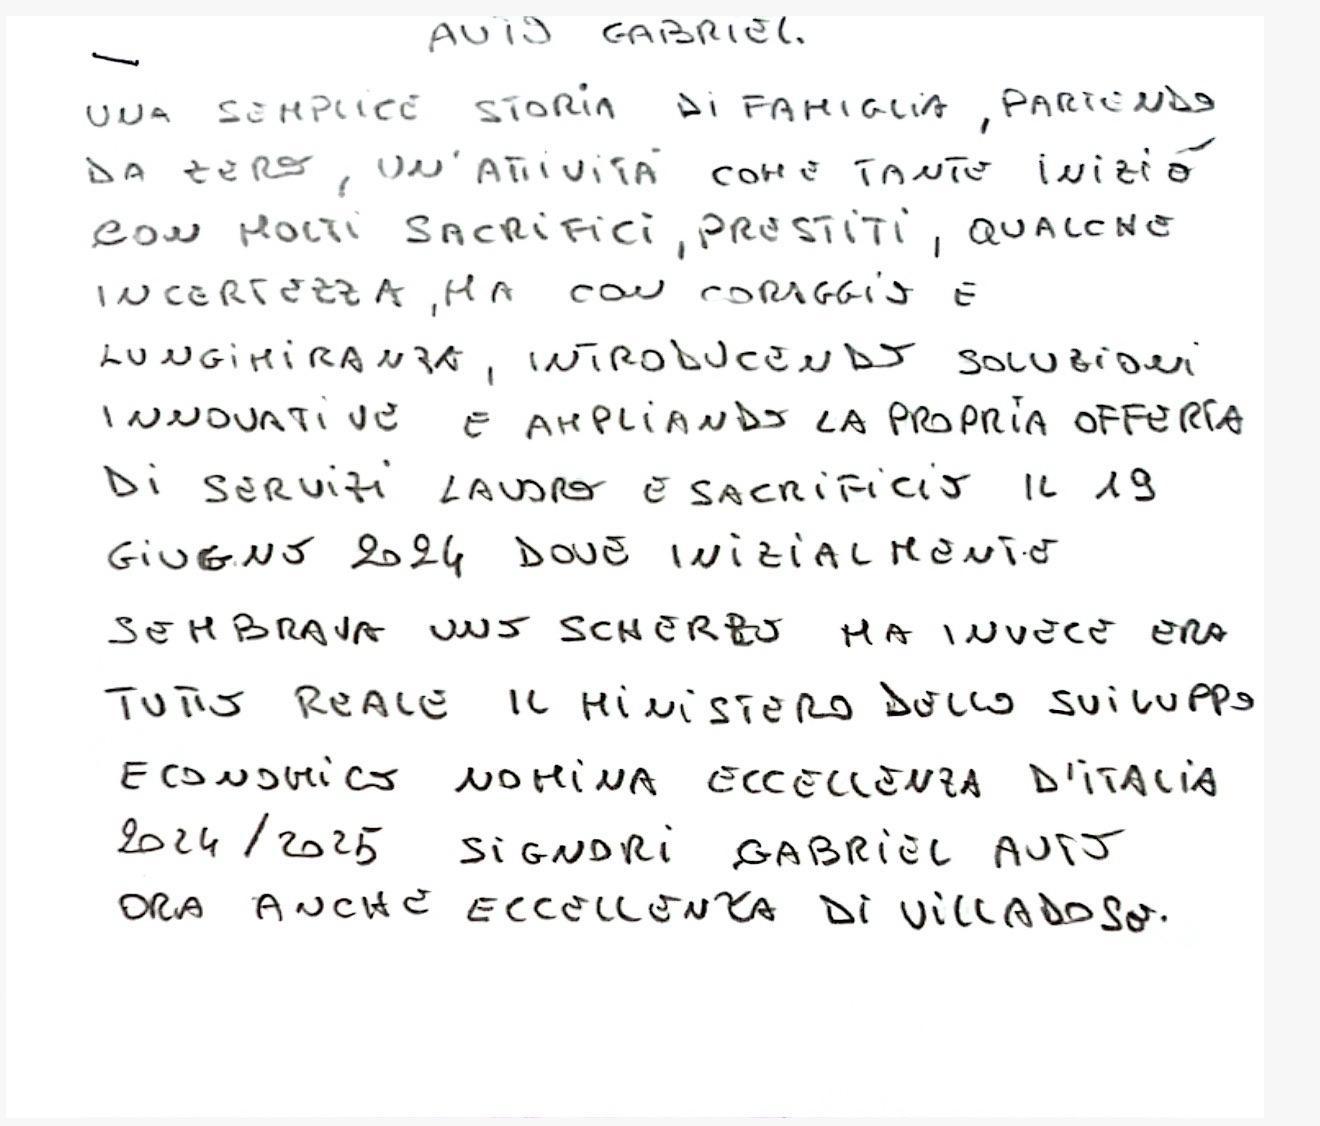 AUTO GABRIEL.
UNA SEMPLICE STORIA DI FAMIGLIA, PARTENDO
DA ZERO, UN'ATTIVITÀ COME TANTE INIZIÒ
CON MOLTI SACRIFICI, PRESTITI, QUALCHE
INCERTEZZA, MA CON CORAGGIO E
LUNGIMIRANZA, INTRODUCENDO SOLUZIONI
INNOVATIVE E AMPLIANDO LA PROPRIA OFFERTA
DI SERVIZI LAVORO E SACRIFICIO IL 19
GIUGNO 2024 DOVE INIZIALMENTE
SEMBRAVA UNO SCHERZO MA INVECE ERA
TUTTO REALE IL MINISTERO DELLO SVILUPPO
ECONOMICO NOMINA ECCELLENZA D'ITALIA
2024/2025 SIGNORI GABRIEL AUTO
ORA ANCHE ECCELLENZA DI VILLADOSE.